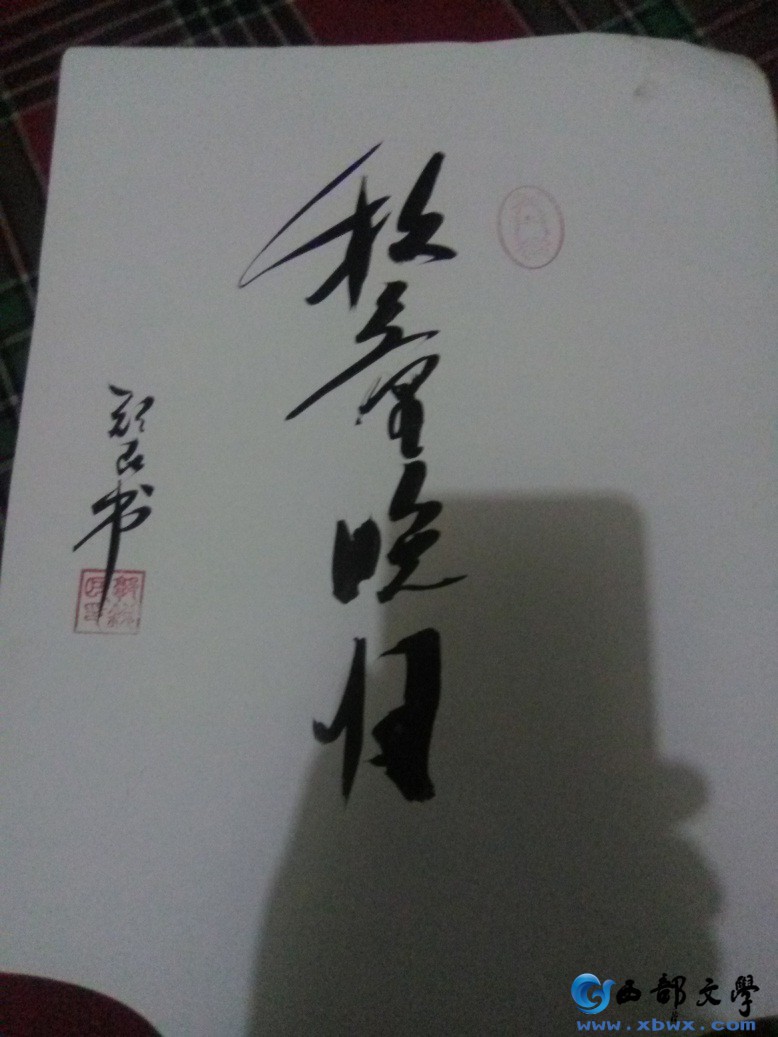 牧童晚归
书
西部文學
www.xbwx.com